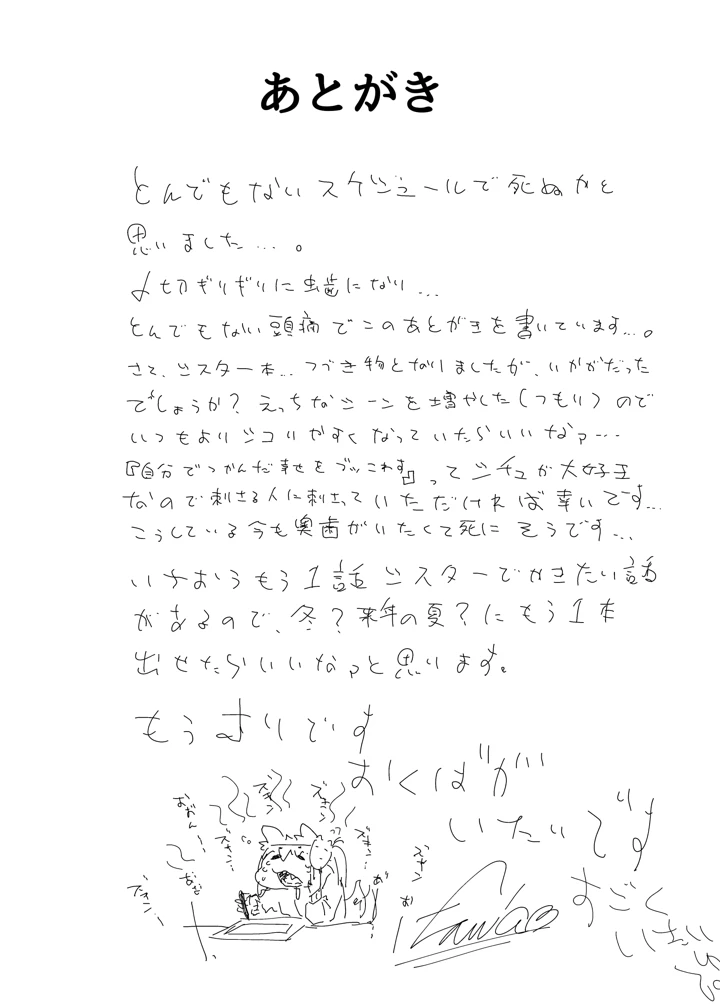 あとがき
とんでもないスケジュールで死ぬかと
思いました…。
〆切ギリギリに虫歯になり…
とんでもない頭痛でこのあとがきを書いています…。
さて、シスター本…つづき物となりましたが、いかがだった
でしょうか？えっちなシーンを増やした(つもり)ので
いつもよりシコりやすくなっていたらいいなァ…
『自分でつかんだ幸せをブッこわす』ってシチュが大好王
なので刺さる人に刺さっていただければ幸いです…
こうしている今も奥歯がいたくて死にそうです…
いちおうもう1話シスターでかきたい話
があるので、冬？来年の夏？にもう1本
出せたらいいなァと思います。
もうムリです
おくばが
いたいです
すごく
いたい
ズキン
ズキン
ズキン…
ズキン…
おおん…
ズキン…
ズキン